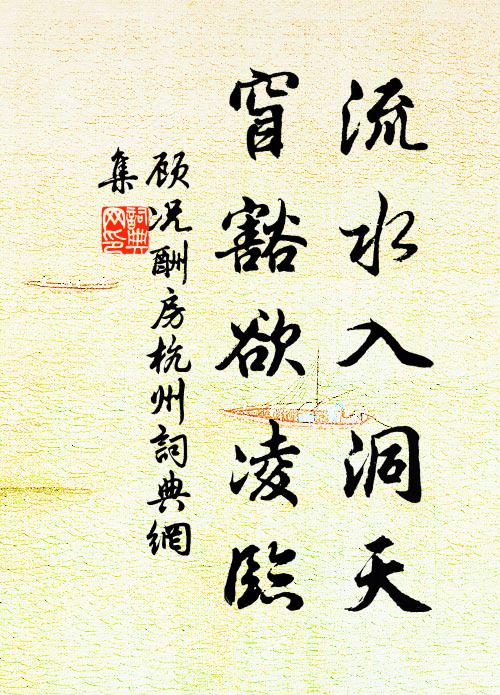 流水入洞天
窅豁欲凌臨
顾况酬房杭州詞典網
集
詞典网印